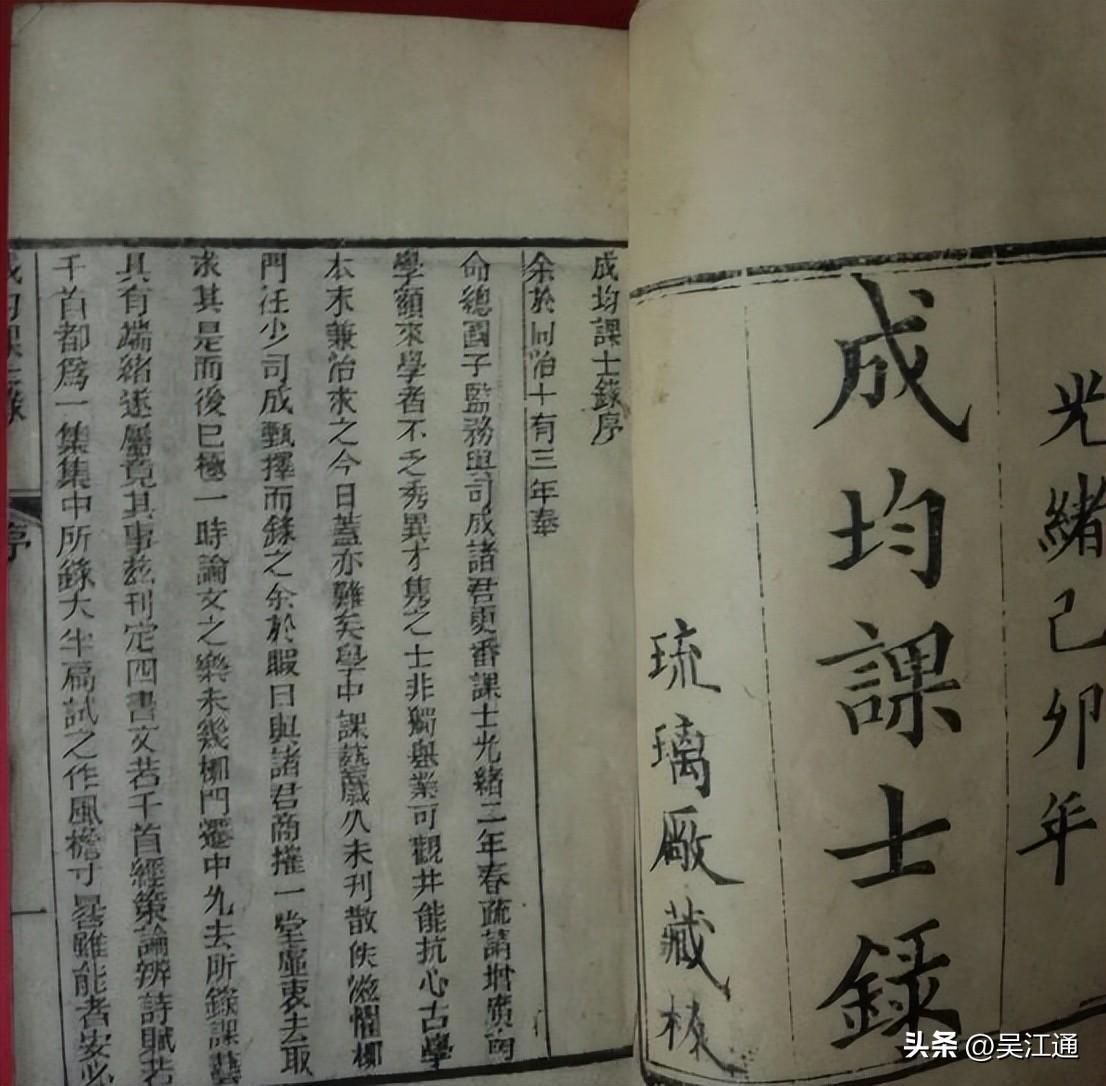 光緒己卯年
成均課士錄
琉璃廠藏板
成均課士錄序
余於同治十有三年奉
命總國子監務與司成諸君更番課士光緒二年春疏請增廣南
學額來學者不乏秀異才雋之士非獨舉業可觀并能抗心古學
本末兼治求之今日蓋亦難矣學中課藝歲久未刊散佚滋懼柳
門汪少司成甄擇而錄之余於暇日與諸君商搉一堂虛衷去取
求其是而後已極一時論文之樂未幾柳門遷中允去所錄課藝
具有端緒遂屬竟其事茲刊定四書文若干首經策論辨詩賦若
干首都為一集集中所錄大半扃試之作風檐寸晷雖能者安必
成均課士錄
序
一
头条 @吴江通